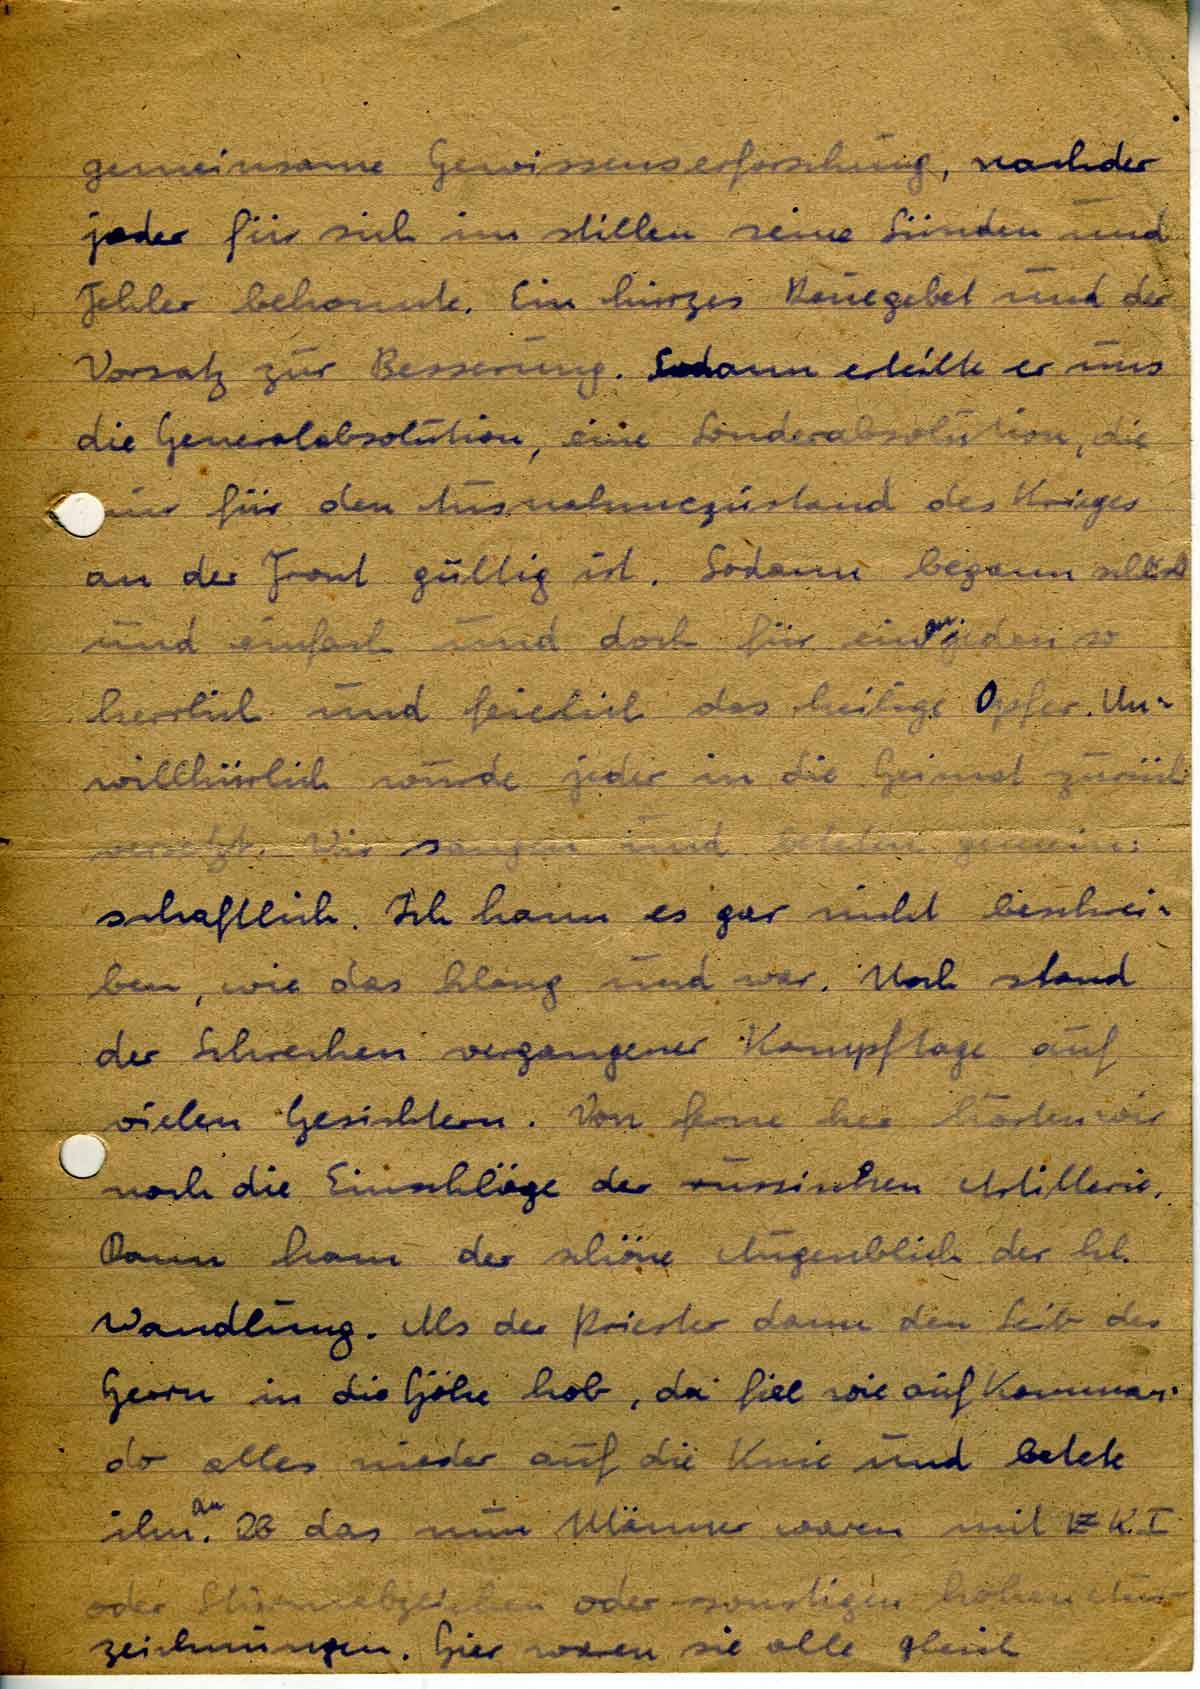 gemeinsame Gewissenserforschung, nachder
jeder für sich im stillen seine Sünden und
Fehler bekannte. Ein kurzes Reuegebet und der
Vorsatz zur Besserung. Sodann erteilte er uns
die Generalabsolution, eine Sonderabsolution, die
nur für den Ausnahmezustand des Krieges
an der Front gültig ist. Sodann begann schlicht
und einfach und doch für einen jeden so
herrlich und feierlich das heilige Opfer. Un-
willkürlich wurde jeder in die Heimat zurück
versetzt. Wir sangen und beteten gemein-
schaftlich. Ich kann es gar nicht beschrei-
ben, wie das klang und war. Noch stand
der Schrecken vergangener Kampftage auf
vielen Gesichtern. Von ferne her hörten wir
noch die Einschläge der russischen Artillerie.
Dann kam der schöne Augenblick der hl.
Wandlung. Als der Priester dann den Leib des
Herrn in die Höhe hob, da fiel wie auf Komman-
do alles nieder auf die Knie und betete
ihn an. Ob das nun Männer waren mit E.K.I
oder Sturmabzeichen oder sonstigen hohen Aus-
zeichnungen. Hier waren sie alle gleich